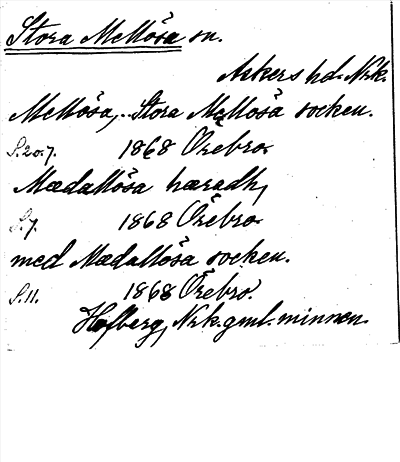 Stora Mellösa sn.
Askers hd. Nrk.
Mellösa, Stora Mellösa socken.
S. 20. 7. 1868 Örebro.
Mædallösa hæradh,
S. 7. 1868 Örebro.
med Mædallösa socken.
S. 11. 1868 Örebro.
Hofberg, Nrk. gml. minnen.